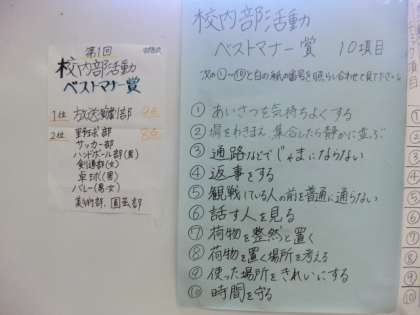 第1回
校内部活動
ベストマナー賞
1位 放送演劇部 9点
2位 野球部 8点
サッカー部
ハンドボール部(男)
剣道部(女)
卓球(男)
バレー(男女)
美術部、園芸部
校内部活動
ベストマナー賞 10項目
次の①~⑩と白の紙の番号を照らし合わせて見て下さい
① あいさつを気持ちよくする
② 場をわきまえ、集合したら静かに並ぶ
③ 通路などでじゃまにならない
④ 返事をする
⑤ 観戦している人の前を普通に通らない
⑥ 話す人を見る
⑦ 荷物を整然と置く
⑧ 荷物を置く場所を考える
⑨ 使った場所をきれいにする
⑩ 時間を守る
⑦
⑧
⑨
⑩